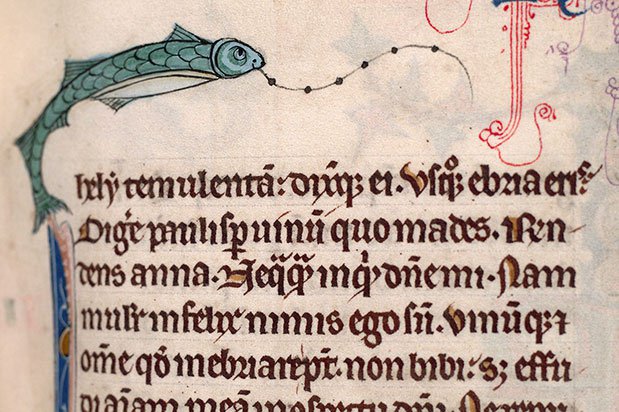 hely temulentā: dix̄q; ei. Usq̊; ebria eris?
Dig̾e paulisꝑ uinū quo mades. Ren
dens anna. Neqq̄ȝ inq̇t dn̄e mi. Nam
mulier infelix nimis ego sū. Vinūq; ⁊
om̄e qd̓ inebriare pt̄. non bibi. sȝ effu
di aīam meā in ɔspectu dn̄i. Ne